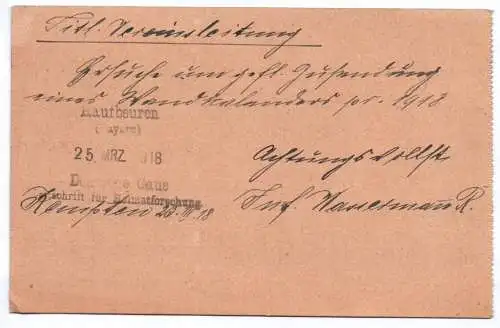 Titl. Vereinsleitung
Ersuche um gefl. Zusendung
eines Wandkalenders pr. 1918
Kaufbeuren
(Bayern)
25. MRZ. 1918
Achtungsvollst
Deutsche Gaue
Zeitschrift für Heimatforschung
Kempten 23. III 18
Inf. Wassermann R.